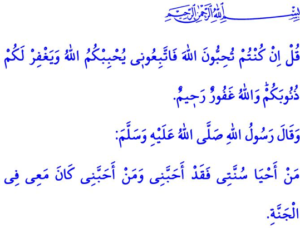 بِسْمِ اللّٰهِ الرَّحْمٰنِ الرَّحِيمِ
قُلْ اِنْ كُنْتُمْ تُحِبُّونَ اللّٰهَ فَاتَّبِعُونٖي يُحْبِبْكُمُ اللّٰهُ وَيَغْفِرْ لَكُمْ
ذُنُوبَكُمْؕ وَاللّٰهُ غَفُورٌ رَحٖيمٌ.
وَقَالَ رَسُولُ اللّٰهِ صَلَّى اللّٰهُ عَلَيْهِ وَسَلَّمَ:
مَنْ أَحْيَا سُنَّتِي فَقَدْ أَحَبَّنِي وَمَنْ أَحَبَّنِي كَانَ مَعِي فِي
الْجَنَّةِ.